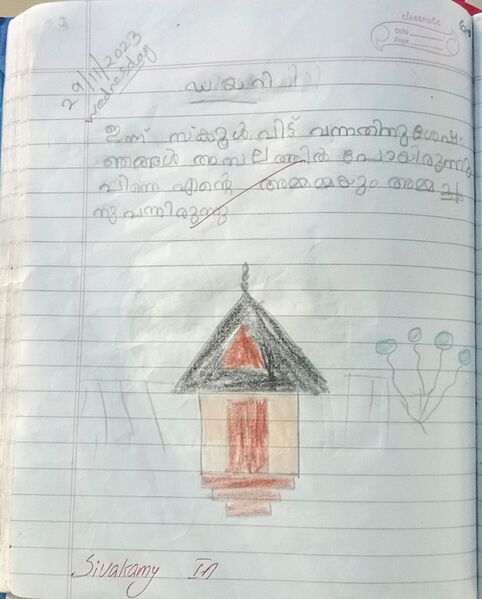 classmate
Date
Page
29/11/2023
Wednesday
ഡയറി
ഇന്ന് സ്കൂൾ വിട്ട് വന്നതിനുശേഷം
ഞങ്ങൾ അമ്പലത്തിൽ പോയിരുന്നു
പിന്നെ എന്റെ അമ്മമ്മയും അമ്മച്ഛ
നു വന്നിരുന്നു
Sivakamy IA